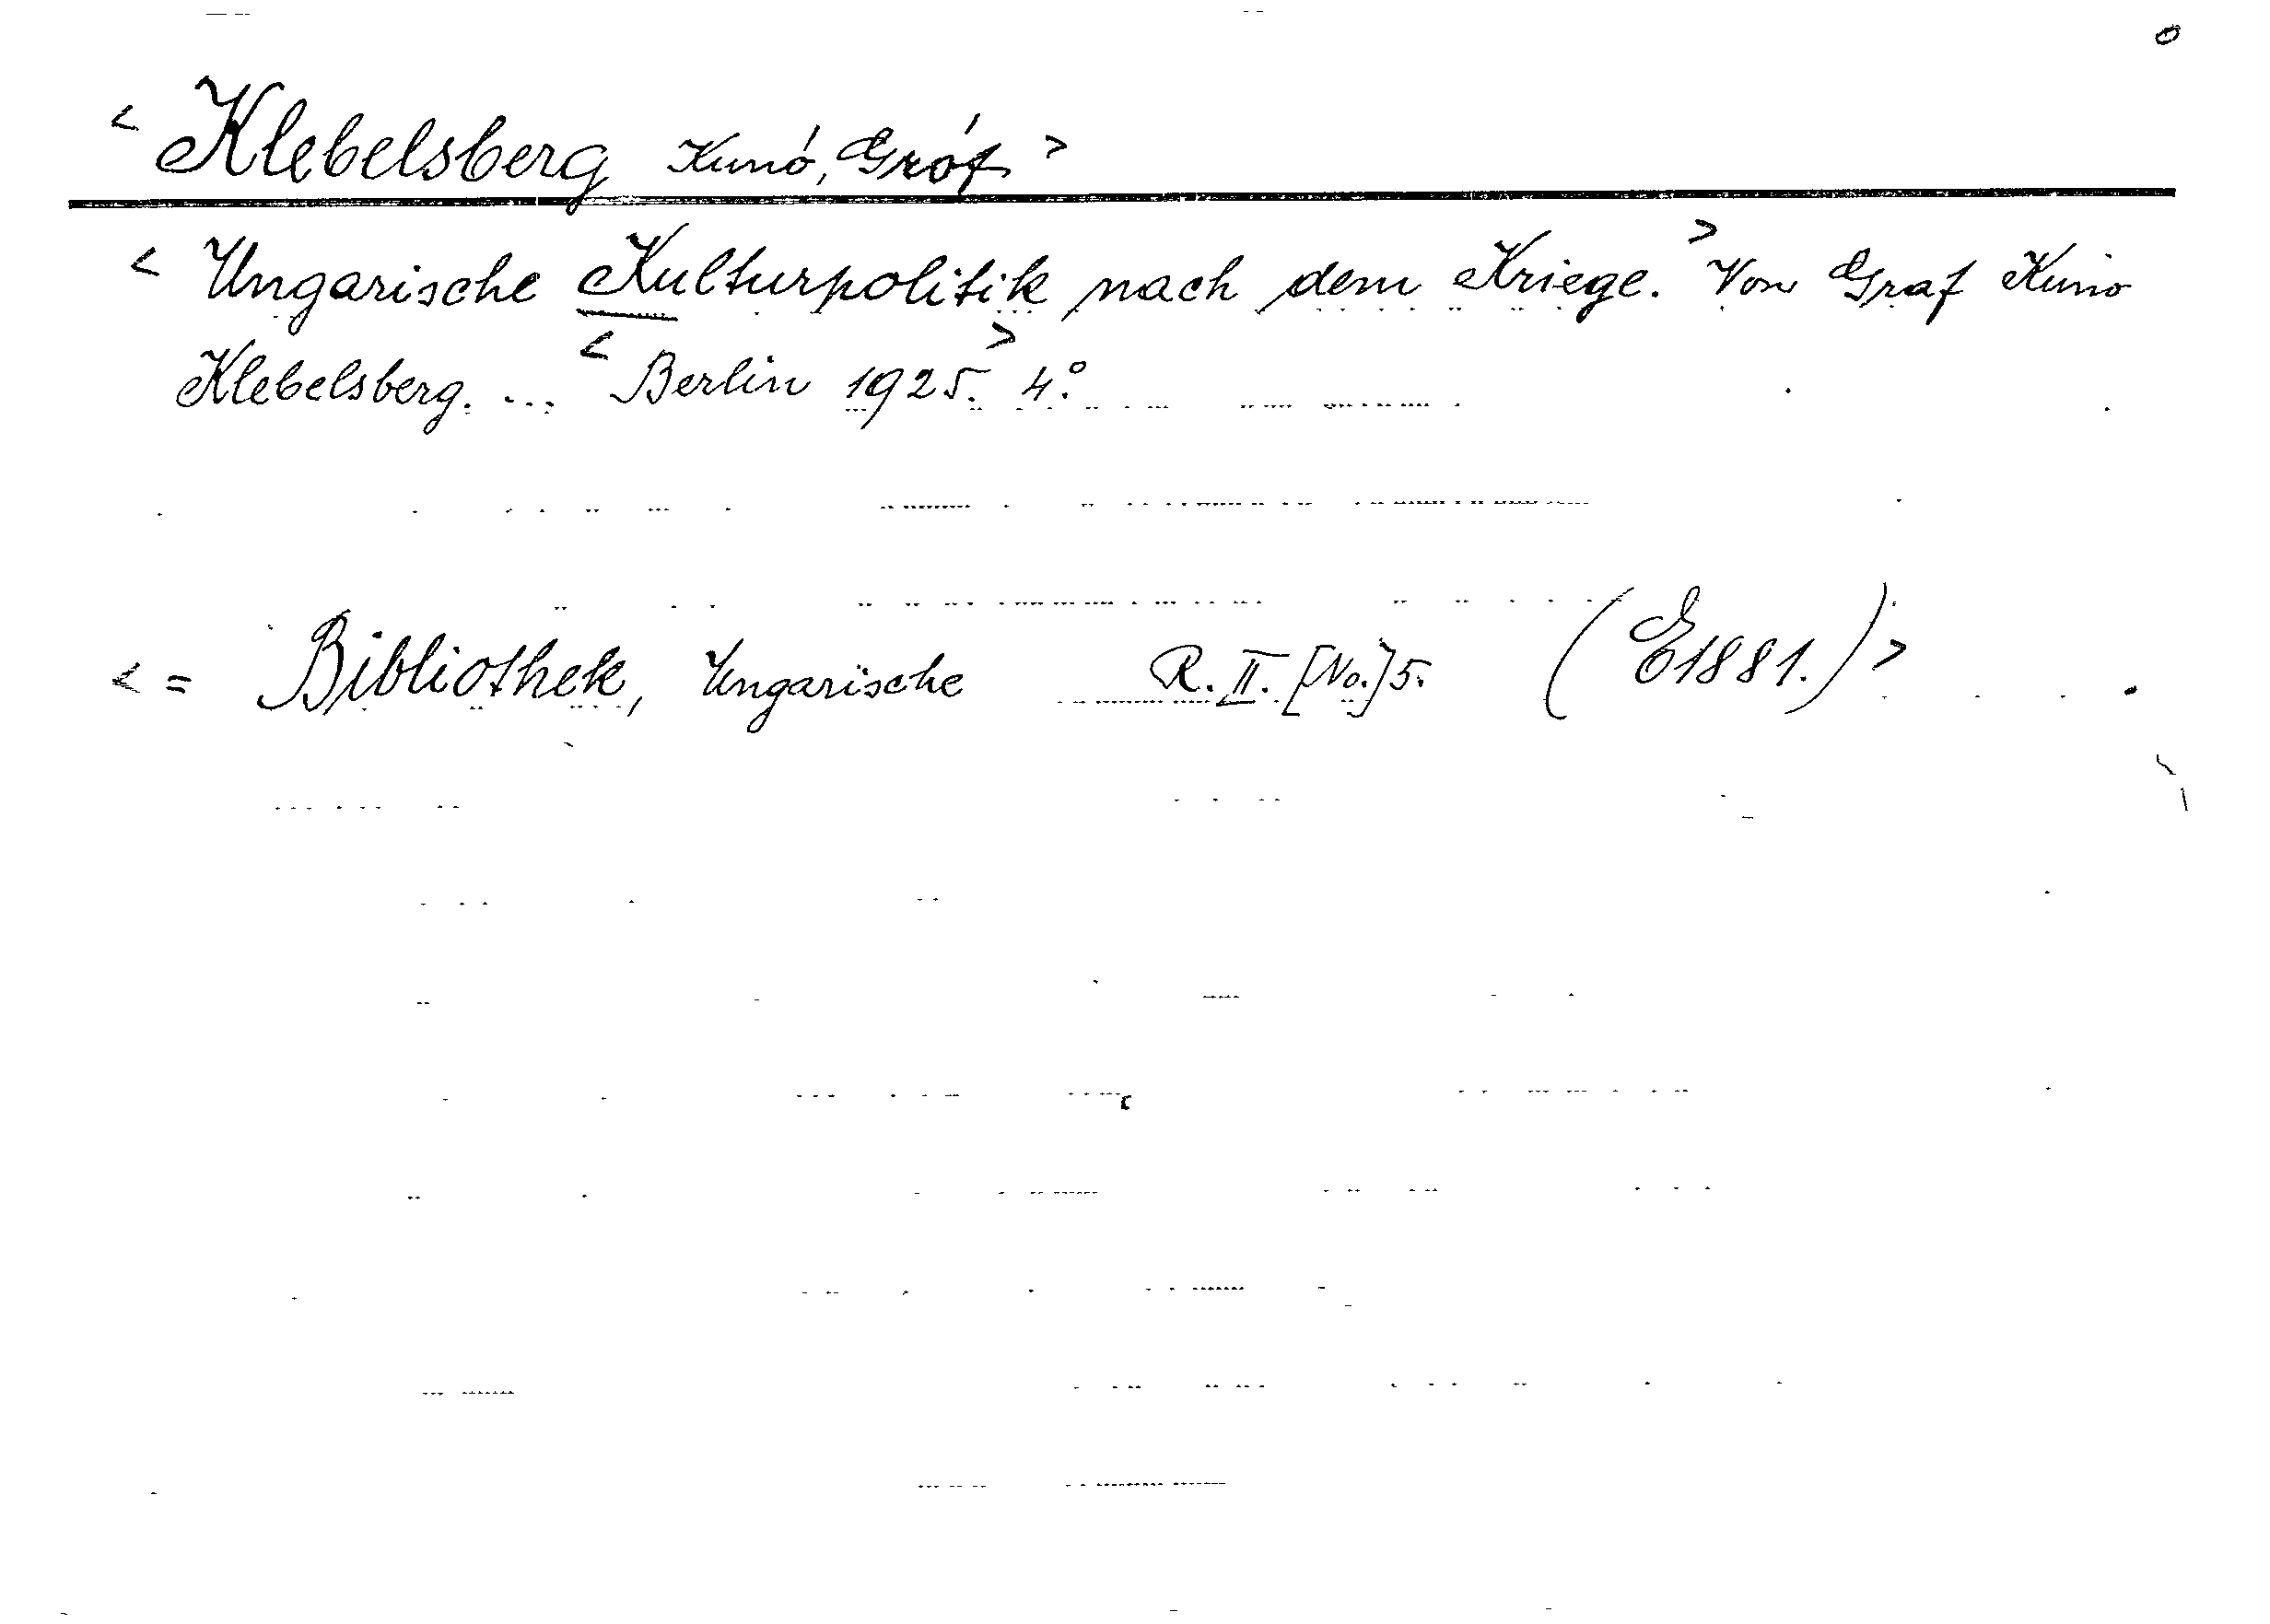 < Klebelsberg Kunó, Gróf >
< Ungarische Kulturpolitik nach dem Kriege. > Von Graf Kuno
Klebelsberg. ... < Berlin 1925. > 4°.
< = Bibliothek, Ungarische R. II. [No.] 5. (E1881.) >